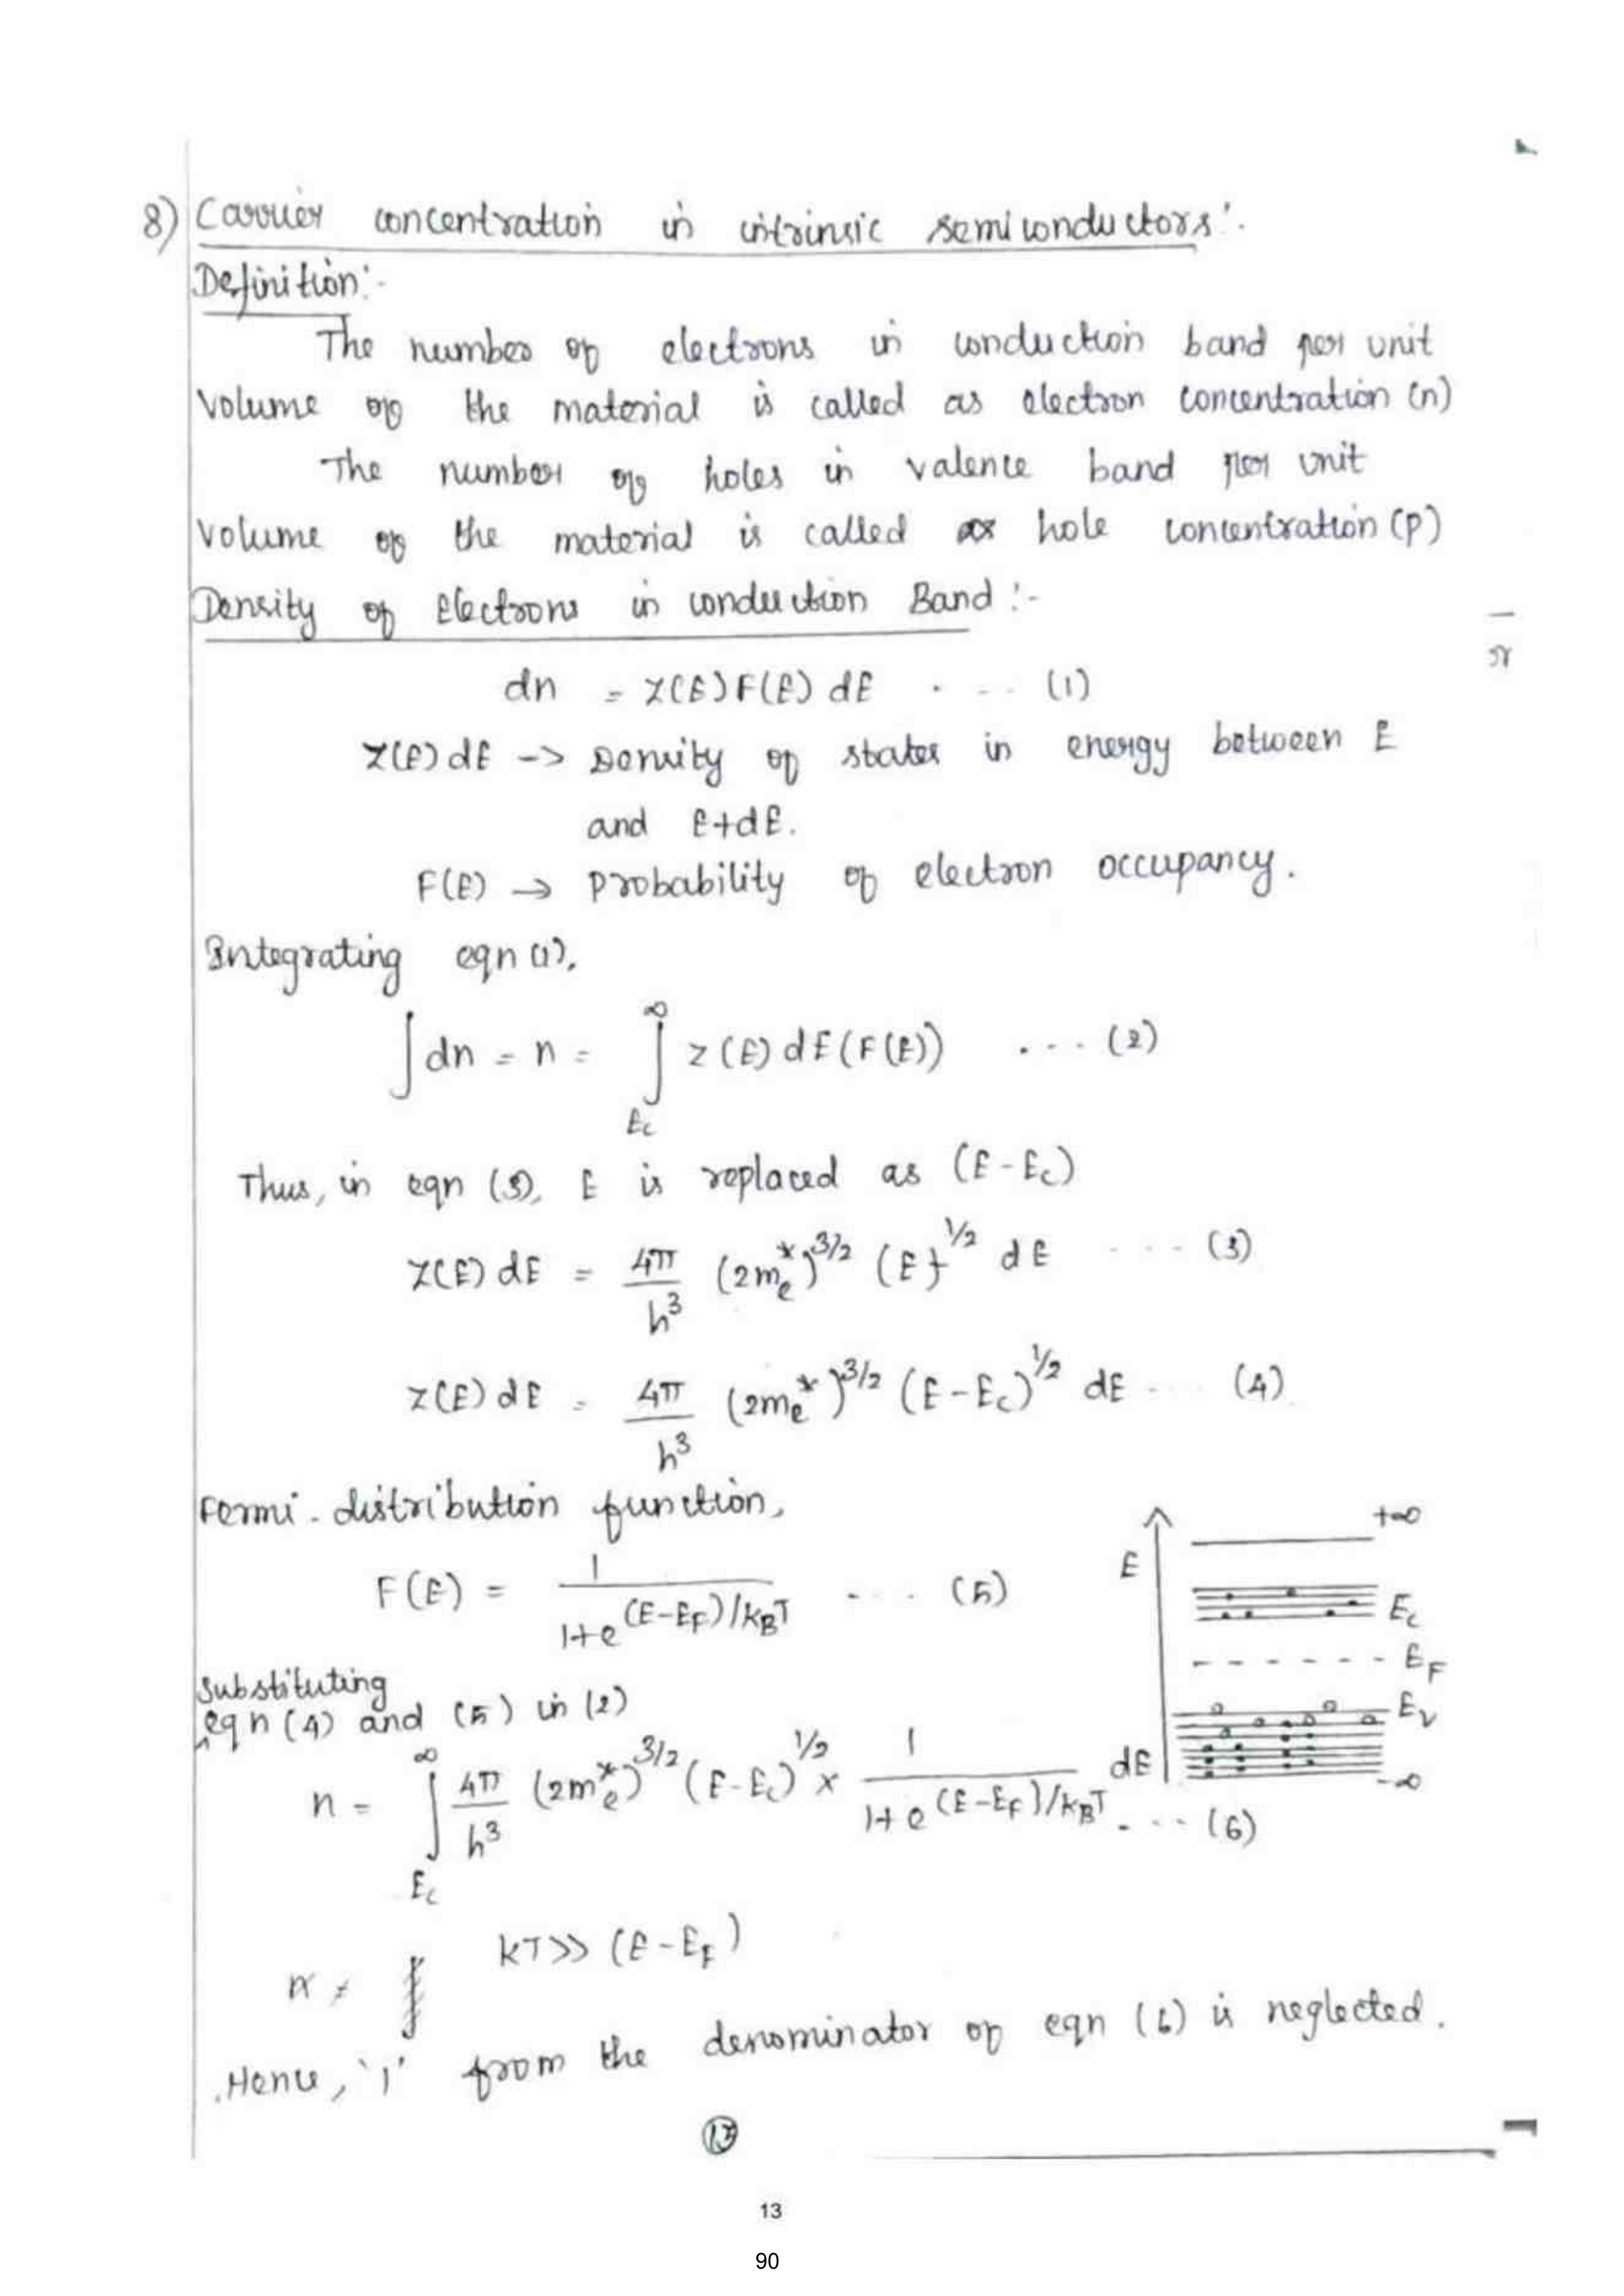 8) Carrier concentration in intrinsic semiconductors:
Definition:-
The number of electrons in conduction band per unit
volume of the material is called as electron concentration (n)
The number of holes in valence band per unit
volume of the material is called as hole concentration (p)
Density of electrons in conduction Band :-
dn = Z(E) F(E) dE . -- (1)
Z(E) dE -> Density of states in energy between E
and E+dE.
F(E) → probability of electron occupancy.
Integrating eqn (1),
∫ dn = n = ∫_{Ec}^{∞} Z(E) dE (F(E)) ... (2)
Thus, in eqn (3), E is replaced as (E - Ec)
Z(E) dE = 4π/h³ (2me*)^3/2 (E)^1/2 dE --- (3)
Z(E) dE = 4π/h³ (2me*)^3/2 (E - Ec)^1/2 dE ... (4)
Fermi - distribution function,
F(E) = 1/(1+e^(E-EF)/kBT) ... (5)
E
+∞
Ec
EF
Ev
dE
-∞
Substituting
eqn (4) and (5) in (2)
n = ∫_{Ec}^{∞} 4π/h³ (2me*)^3/2 (E - Ec)^1/2 × 1/(1+e^(E-EF)/kBT) ... (6)
kT >> (E - EF)
Hence, '1' from the denominator of eqn (6) is neglected.
13
90